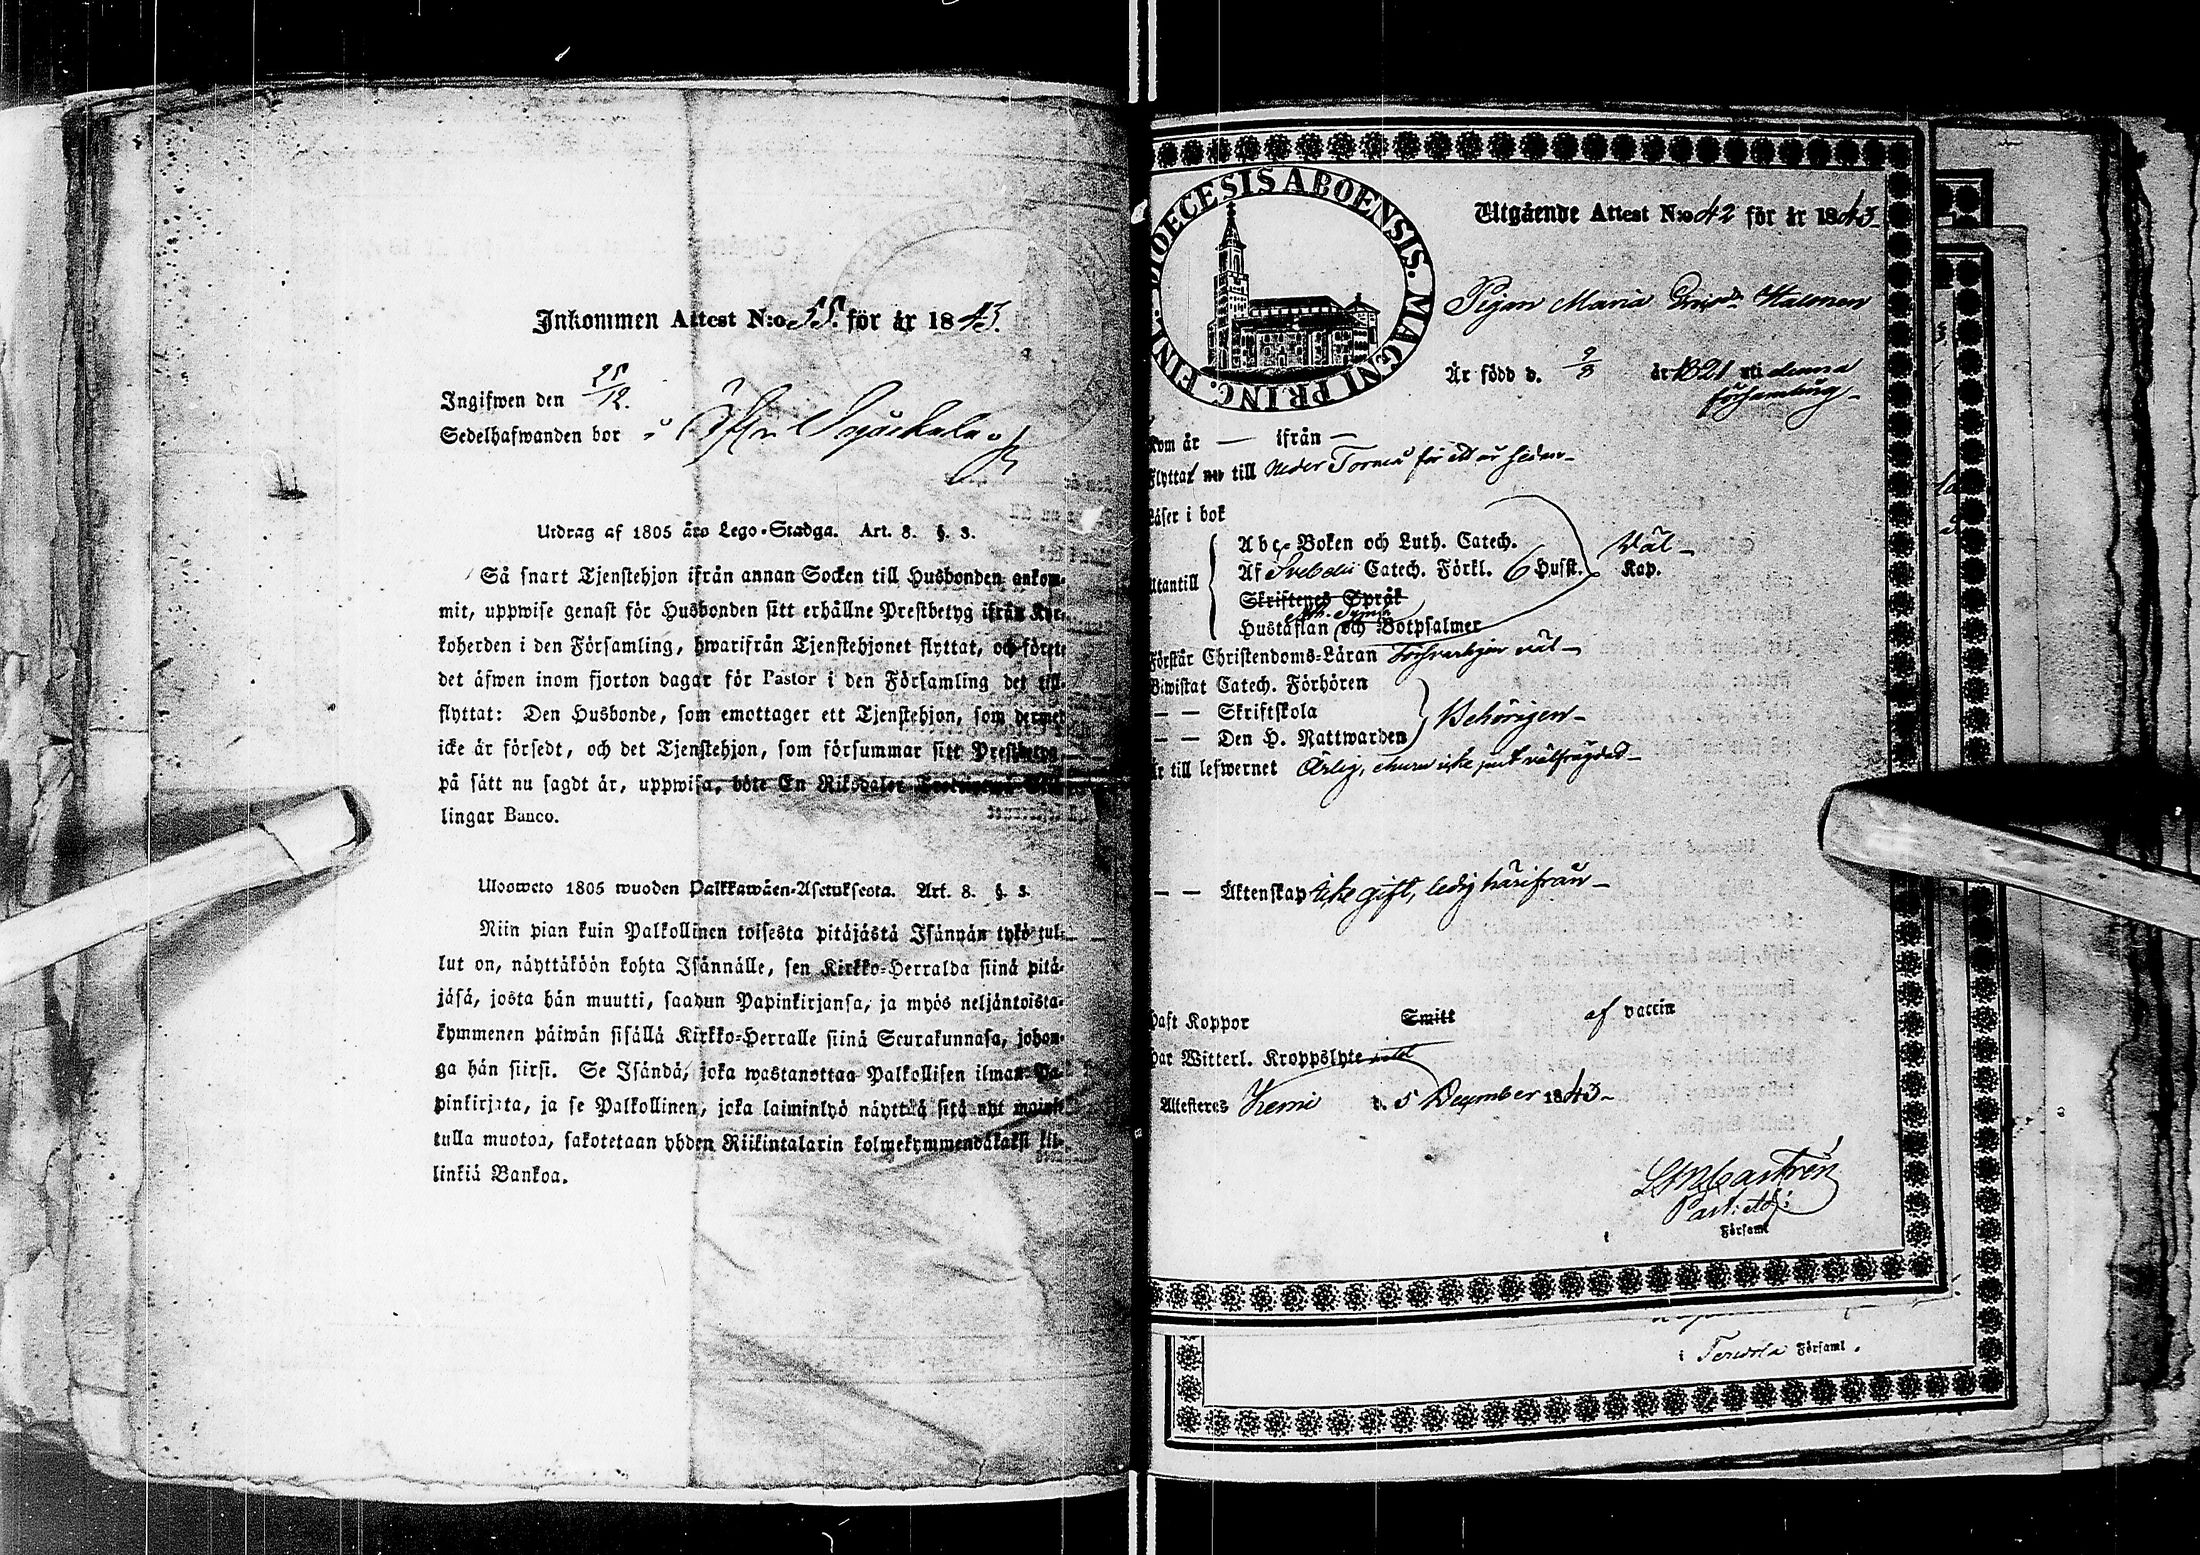 Inkommen Attest N:o 55. för år 1843.
Ingifwen den 25/12.
Sedelhafwanden bor i
Utdrag af 1805 års Lego-Stadga. Art. 8. §. 3.
Så snart Tjenstehjon ifrån annan Socken till Husbonden ankom-
mit, uppwise genast för Husbonden sitt erhållne Prestbetyg ifrån Kyr-
koherden i den Församling, hwarifrån Tjenstehjonet flyttat, och förete
det äfwen inom fjorton dagar för Pastor i den Församling det till-
flyttat: Den Husbonde, som emottager ett Tjenstehjon, som dermed
icke är försedt, och det Tjenstehjon, som försummar sitt Prestbetyg
på sätt nu sagdt är, uppwisa, böte En Riksdaler
lingar Banco.
Ulosweto 1805 wuoden Palkkawäen-Asetuksesta. Art. 8. §. 3.
Niin pian kuin Palkollinen toisesta pitäjästä Isännän tykö tul-
lut on, näyttäköön kohta Isännälle, sen Kirkko-Herralda siinä pitä-
jäsä, josta hän muutti, saadun Papinkirjansa, ja myös neljäntoista-
kymmenen päiwän sisällä Kirkko-Herralle siinä Seurakunnasa, johon-
ga hän siirsi. Se Isändä, joka wastanottaa Palkollisen ilman Pa-
pinkirjata, ja se Palkollinen, joka laiminlyö näyttää sitä nyt mainit-
tulla muotoa, sakotetaan yhden Riikintalarin kolmekymmendäkaksi kil-
linkiä Bankoa.
DIOECESIS ABOENSIS. MAGNI PRINC. FINL.
Utgående Attest N:o 42 för år 1843
Pigan Maria Halonen
Är född d. 9/8 år 1821 uti denna
församling
kom år — ifrån —
Flyttat nu till Neder Torneå för ett år sedan
Läser i bok
Abc-Boken och Luth. Catech. Väl
Af Svebelii Catech. Förkl. 6 Husst. Kap.
Utantill
Skriftenes Språk
Hustaflan och Botpsalmer
Förstår Christendoms-Läran Försvarligen väl
Biwistat Catech. Förhören
— — Skriftskola Behörigen
— — Den H. Nattwarden
Är till lefwernet Ärlig, ehuru icke just välfrägdad
— — Äktenskap icke gift, ledig härifrån
Haft Koppor Smitt af vaccin
Har Witterl. Kroppslyte
Attesteras Kemi d. 5 December 1843
Castrén
Församl
i Terwola Församl.